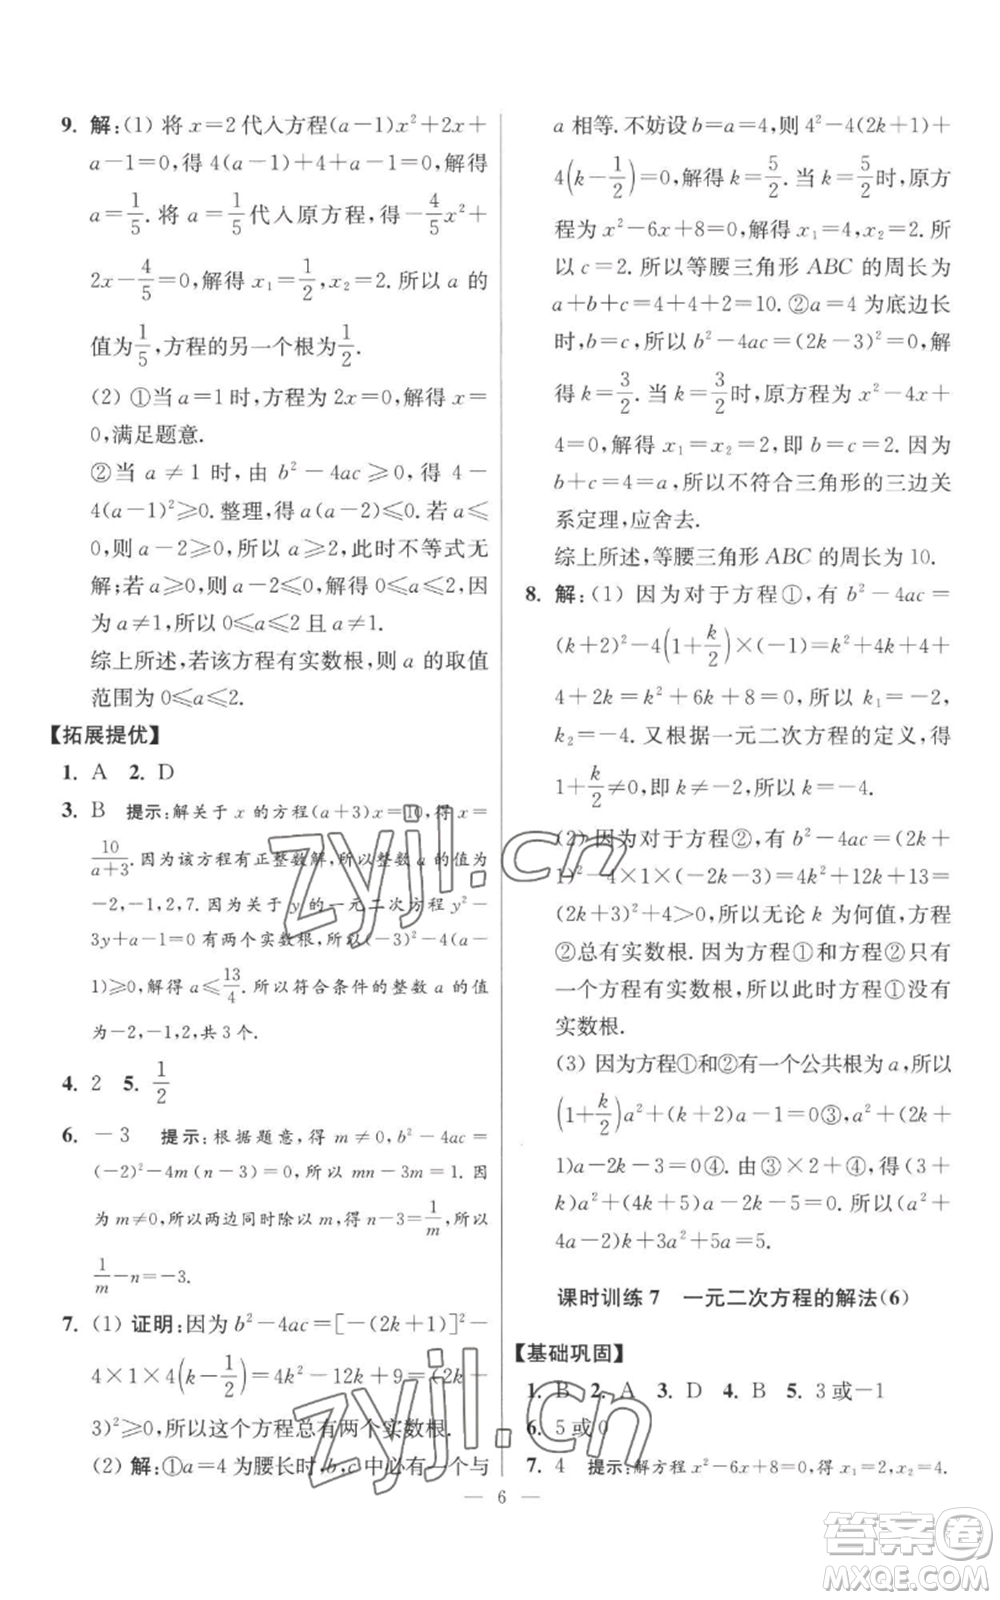 9. 解:(1) 将 x=2 代入方程(a-1)x²+2x+
a-1=0,得 4(a-1)+4+a-1=0,解得
a=1/5. 将 a=1/5 代入原方程,得-4/5x²+
2x-4/5=0,解得 x₁=1/2,x₂=2. 所以 a 的
值为1/5,方程的另一个根为1/2.
(2) ①当 a=1时,方程为 2x=0,解得 x=
0,满足题意.
②当 a≠1 时,由 b²-4ac≥0,得 4-
4(a-1)²≥0. 整理,得 a(a-2)≤0. 若 a≤
0,则 a-2≥0,所以 a≥2,此时不等式无
解;若 a≥0,则 a-2≤0,所以 0≤a≤2,因
为 a≠1,所以 0≤a≤2 且 a≠1.
综上所述,若该方程有实数根,则 a 的取值
范围为 0≤a≤2.
【拓展提优】
1. A 2. D
3. B 提示:解关于 x 的方程(a+3)x=10,得 x=
10/(a+3). 因为该方程有正整数解,所以整数 a 的值为
-2,-1,2,7. 因为关于 y 的一元二次方程 y²-
3y+a-1=0 有两个实数根,所以(-3)²-4(a-
1)≥0,解得 a≤13/4. 所以符合条件的整数 a 的值
为-2,-1,2,共 3 个.
4. 2 5. 1/2
6. -3 提示:根据题意,得 m≠0,b²-4ac=
(-2)²-4m(n-3)=0,所以 mn-3m=1. 因
为 m≠0,所以两边同时除以 m,得 n-3=1/m,所以
1/m-n=-3.
7. (1) 证明:因为 b²-4ac=[-(2k+1)]²-
4×1×4(k-1/2)=4k²-12k+9=(2k-
3)²≥0,所以这个方程总有两个实数根.
(2) 解:①a=4 为腰长时,b,c 中必有一个与
a 相等. 不妨设 b=a=4,则 4²-4(2k+1)+
4(k-1/2)=0,解得 k=5/2. 当 k=5/2时,原方
程为 x²-6x+8=0,解得 x₁=4,x₂=2. 所
以 c=2. 所以等腰三角形 ABC 的周长为
a+b+c=4+4+2=10. ②a=4 为底边长
时,b=c,所以 b²-4ac=(2k-3)²=0,解
得 k=3/2. 当 k=3/2时,原方程为 x²-4x+
4=0,解得 x₁=x₂=2,即 b=c=2. 因为
b+c=4=a,所以不符合三角形的三边关
系定理,应舍去.
综上所述,等腰三角形 ABC 的周长为 10.
8. 解:(1) 因为对于方程①,有 b²-4ac=
(k+2)²-4(1+k/2)×(-1)=k²+4k+4+
4+2k=k²+6k+8=0,所以 k₁=-2,
k₂=-4. 又根据一元二次方程的定义,得
1+k/2≠0,即 k≠-2,所以 k=-4.
(2) 因为对于方程②,有 b²-4ac=(2k+
1)²-4×1×(-2k-3)=4k²+12k+13=
(2k+3)²+4>0,所以无论 k 为何值,方程
②总有实数根. 因为方程①和方程②只有
一个方程有实数根,所以此时方程①没有
实数根.
(3) 因为方程①和②有一个公共根为 a,所以
(1+k/2)a²+(k+2)a-1=0③,a²+(2k+
1)a-2k-3=0④. 由③×2+④,得(3+
k)a²+(4k+5)a-2k-5=0. 所以(a²+
4a-2)k+3a²+5a=5.
课时训练 7 一元二次方程的解法(6)
【基础巩固】
1. B 2. A 3. D 4. B 5. 3 或-1
6. 5 或 0
7. 4 提示:解方程 x²-6x+8=0,得 x₁=2,x₂=4.
— 6 —
zyjl.cn
zyjl.cn
答案圈
MXQE.COM